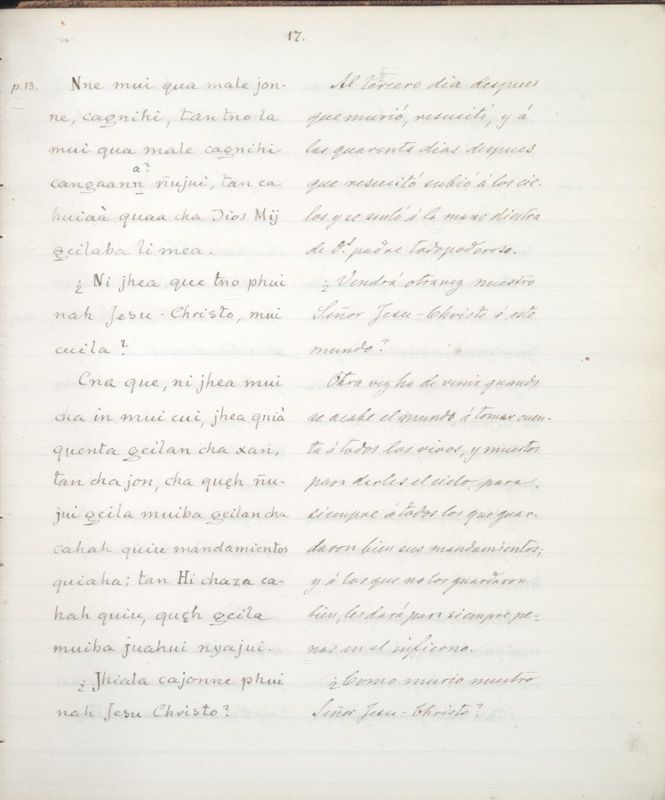 17.
p.13.
Nne mui qua male jon-
ne, cagnihi, tan tno la
mui qua male cagnihi
a?
cangaann ñujui, tan ca
huiaà quaa cha Dios Mij
geilaba li mea.
¿ Ni jhea que tno phui
nah Jesu-Christo, mui
cuila?
Cna que, ni jhea mui
cha in mui cui, jhea qnia
quenta geilan cha xañ,
tan cha jon, cha quęh ñu-
jui geila muiba geilan cha
cahah quiu mandamientos
quiaha; tan Hi chaza ca-
hah quiu, quęh geila
muiba juahui nyajui.
¿ Jhiala cajonne phui
nah Jesu Christo?
Al tercero dia despues
que murió, resucitó, y á
los quarenta dias despues
que resucitó subió á los cie-
los y se sentó á la mano diestra
de D.s padre todopoderoso.
¿ Vendrá otra vez nuestro
Señor Jesu-Christo á este
mundo?
Otra vez ha de venir quando
se acabe el mundo, á tomar cuen-
ta á todos los vivos, y muertos
para darles el cielo para
siempre á todos los que guar-
daron bien sus mandamientos;
y á los que no los guardaron
bien, les dará para siempre pe-
nas en el infierno.
¿ Como murio nuestro
Señor Jesu-Christo?